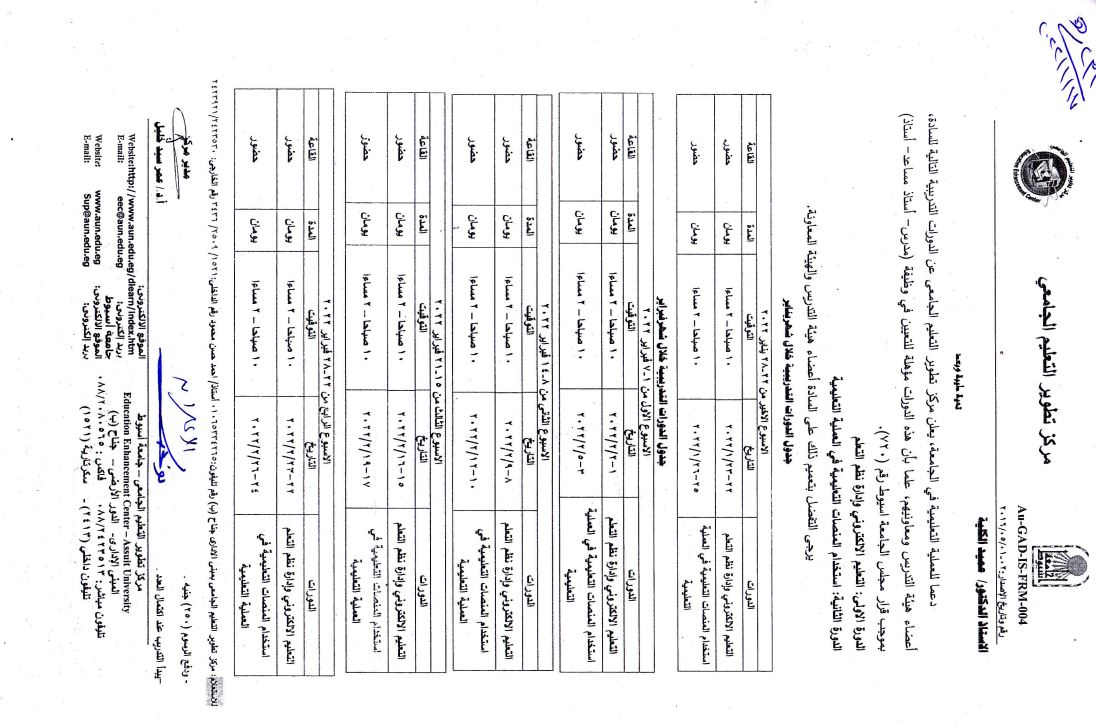 Au-GAD-IS-FRM-004
رقم وتاريخ الإصدار: ٢٠١٧/٥/٨١٠٢
مركز تطوير التعليم الجامعي
الاستاذ الدكتور/ عميد الكلية
تحية طيبة وبعد
دعما للعملية التعليمية في الجامعة، يعلن مركز تطوير التعليم الجامعى عن الدورات التدريبية التالية للسادة،
أعضاء هيئة التدريس ومعاونيهم، علما بأن هذه الدورات مؤهلة للتعيين في وظيفة (مدرس- أستاذ مساعد- أستاذ)
بموجب قرار مجلس الجامعة اسيوط رقم (٧٢٠).
الدورة الاولى: التعليم الالكتروني وإدارة نظم التعلم
الدورة الثانية: استخدام المنصات التعليمية في العملية التعليمية
يرجى التفضل بتعميم ذلك على السادة أعضاء هيئة التدريس والهيئة المعاونة.
جدول الدورات التدريبية خلال شهر يناير
الاسبوع الاخير من ٢٢-٢٨ يناير ٢٠٢٢
الدورات التاريخ التوقيت المدة القاعة
التعليم الالكتروني وإدارة نظم التعلم ٢٢-٢٠٢٢/١/٢٣ ١٠ صباحا – ٢ مساءا يومان حضور
استخدام المنصات التعليمية في العملية التعليمية ٢٥-٢٠٢٢/١/٢٦ ١٠ صباحا – ٢ مساءا يومان حضور
جدول الدورات التدريبية خلال شهر فبراير
الاسبوع الاول من ١-٧ فبراير ٢٠٢٢
الدورات التاريخ التوقيت المدة القاعة
التعليم الالكتروني وإدارة نظم التعلم ١-٢٠٢٢/٢/٢ ١٠ صباحا – ٢ مساءا يومان حضور
استخدام المنصات التعليمية في العملية التعليمية ٣-٢٠٢٢/٢/٥ ١٠ صباحا – ٢ مساءا يومان حضور
الاسبوع الثاني من ٨-١٤ فبراير ٢٠٢٢
الدورات التاريخ التوقيت المدة القاعة
التعليم الالكتروني وإدارة نظم التعلم ٨-٢٠٢٢/٢/٩ ١٠ صباحا – ٢ مساءا يومان حضور
استخدام المنصات التعليمية في العملية التعليمية ١٠-٢٠٢٢/٢/١٢ ١٠ صباحا – ٢ مساءا يومان حضور
الاسبوع الثالث من ١٥-٢١ فبراير ٢٠٢٢
الدورات التاريخ التوقيت المدة القاعة
التعليم الالكتروني وإدارة نظم التعلم ١٥-٢٠٢٢/٢/١٦ ١٠ صباحا – ٢ مساءا يومان حضور
استخدام المنصات التعليمية في العملية التعليمية ١٧-٢٠٢٢/٢/١٩ ١٠ صباحا – ٢ مساءا يومان حضور
الاسبوع الرابع من ٢٢-٢٨ فبراير ٢٠٢٢
الدورات التاريخ التوقيت المدة القاعة
التعليم الالكتروني وإدارة نظم التعلم ٢٢-٢٠٢٢/٢/٢٣ ١٠ صباحا – ٢ مساءا يومان حضور
استخدام المنصات التعليمية في العملية التعليمية ٢٤-٢٠٢٢/٢/٢٦ ١٠ صباحا – ٢ مساءا يومان حضور
للاستعلام: مركز تطوير التعليم الجامعى بمبنى الادارى جناح (ب) رقم تليفون: ٠١٠٦٥٣٢٤٤٦٥ أستاذ/ احمد حسن محمود رقم الداخلى: ١٥٢١/ ٢٥٠٩/ ٢٤٣٦ رقم الخارجى: ٢٤٢٣٥٣٠/ ٢٤١٣٩٢١
- ودفع الرسوم (٢٥٠) جنيه.
-يبدأ التدريب عند اكتمال العدد.
مدير مركز
أ.د./ عمر سيد خليل
مركز تطوير التعليم الجامعى – جامعة أسيوط
Education Enhancement Center – Assuit University
المبنى الإدارى- الدور الأرضى – جناح (ب)
تليفون مباشر: ٠٨٨/٢٤٢٣٥١٣ فاكس : ٠٨٨/٢٠٨٠٥٦٥
تليفون داخلى (٢٤١٣) - سكرتارية (١٥٢١)
الموقع الالكترونى: Website:http://www.aun.edu.eg/dlearn/Index.htm
بريد إلكترونى: eec@aun.edu.eg E-mail:
جامعة أسيوط
الموقع الالكترونى: www.aun.edu.eg Website:
بريد إلكترونى: Sup@aun.edu.eg E-mail: